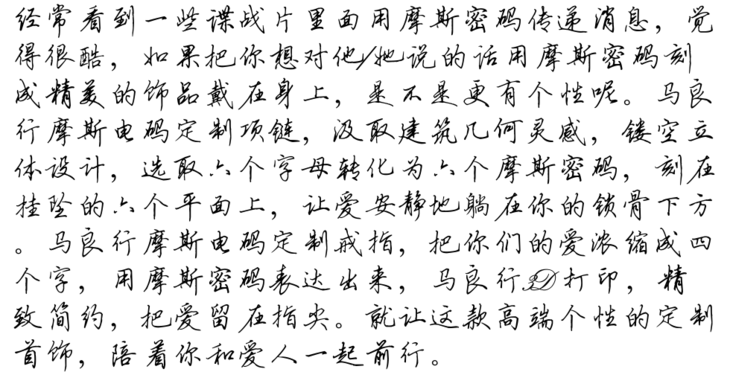 经常看到一些谍战片里面用摩斯密码传递消息，觉
得很酷，如果把你想对他/她说的话用摩斯密码刻
成精美的饰品戴在身上，是不是更有个性呢。马良
行摩斯电码定制项链，汲取建筑几何灵感，镂空立
体设计，选取六个字母转化为六个摩斯密码，刻在
挂坠的六个平面上，让爱安静地躺在你的锁骨下方
。马良行摩斯电码定制戒指，把你们的爱浓缩成四
个字，用摩斯密码表达出来，马良行3D打印，精
致简约，把爱留在指尖。就让这款高端个性的定制
首饰，陪着你和爱人一起前行。